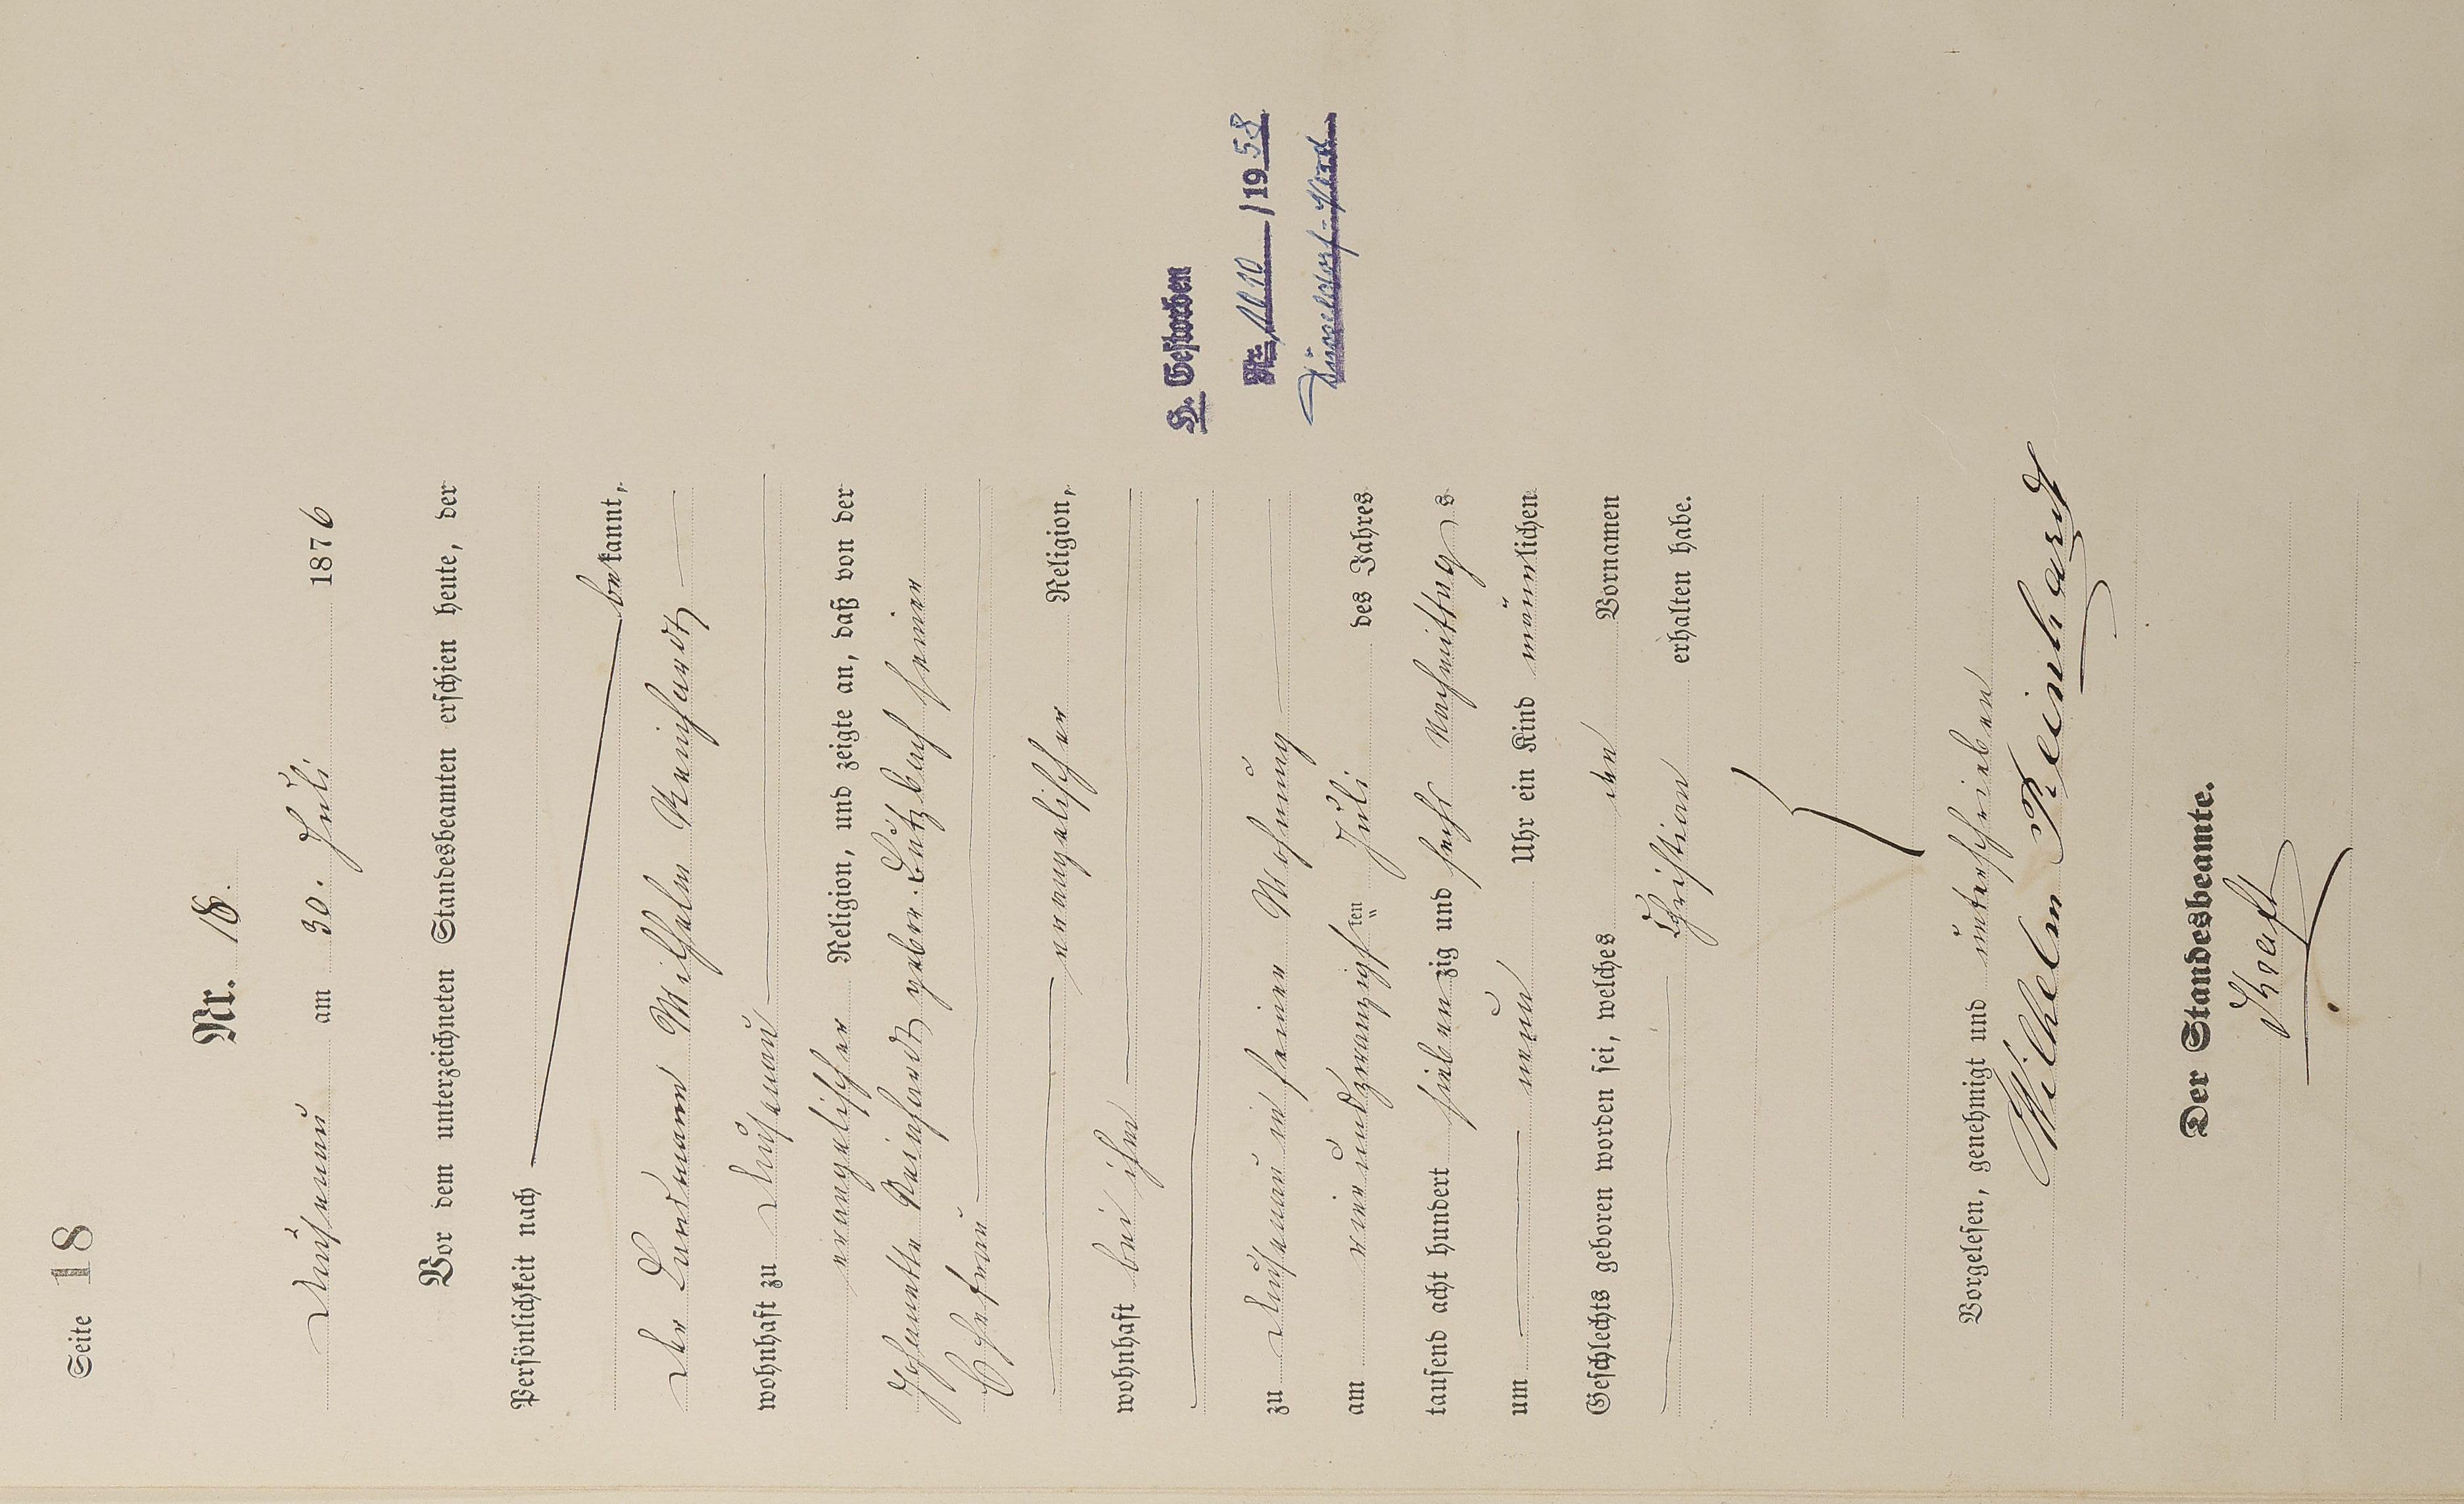 Seite 18
Nr. 18.
am 30. Juli 1876
Vor dem unterzeichneten Standesbeamten erschien heute, der
Persönlichkeit nach
bekannt,
der Landmann Wilhelm Reinhardt
wohnhaft zu
evangelischer Religion, und zeigte an, daß von der
Johannette Reinhardt, gebor. Lützbach seiner
Ehefrau
evangelischer Religion,
wohnhaft bei ihm
zu in seiner Wohnung
am neunundzwanzigsten Juli des Jahres
tausend acht hundert siebenzig und sechs Nachmittags
um neun Uhr ein Kind männlichen
Geschlechts geboren worden sei, welches den Vornamen
Christian erhalten habe.
Vorgelesen, genehmigt und unterschrieben
Wilhelm Reinhardt
Der Standesbeamte.
Kraft
H. Gestorben
Nr. /1958